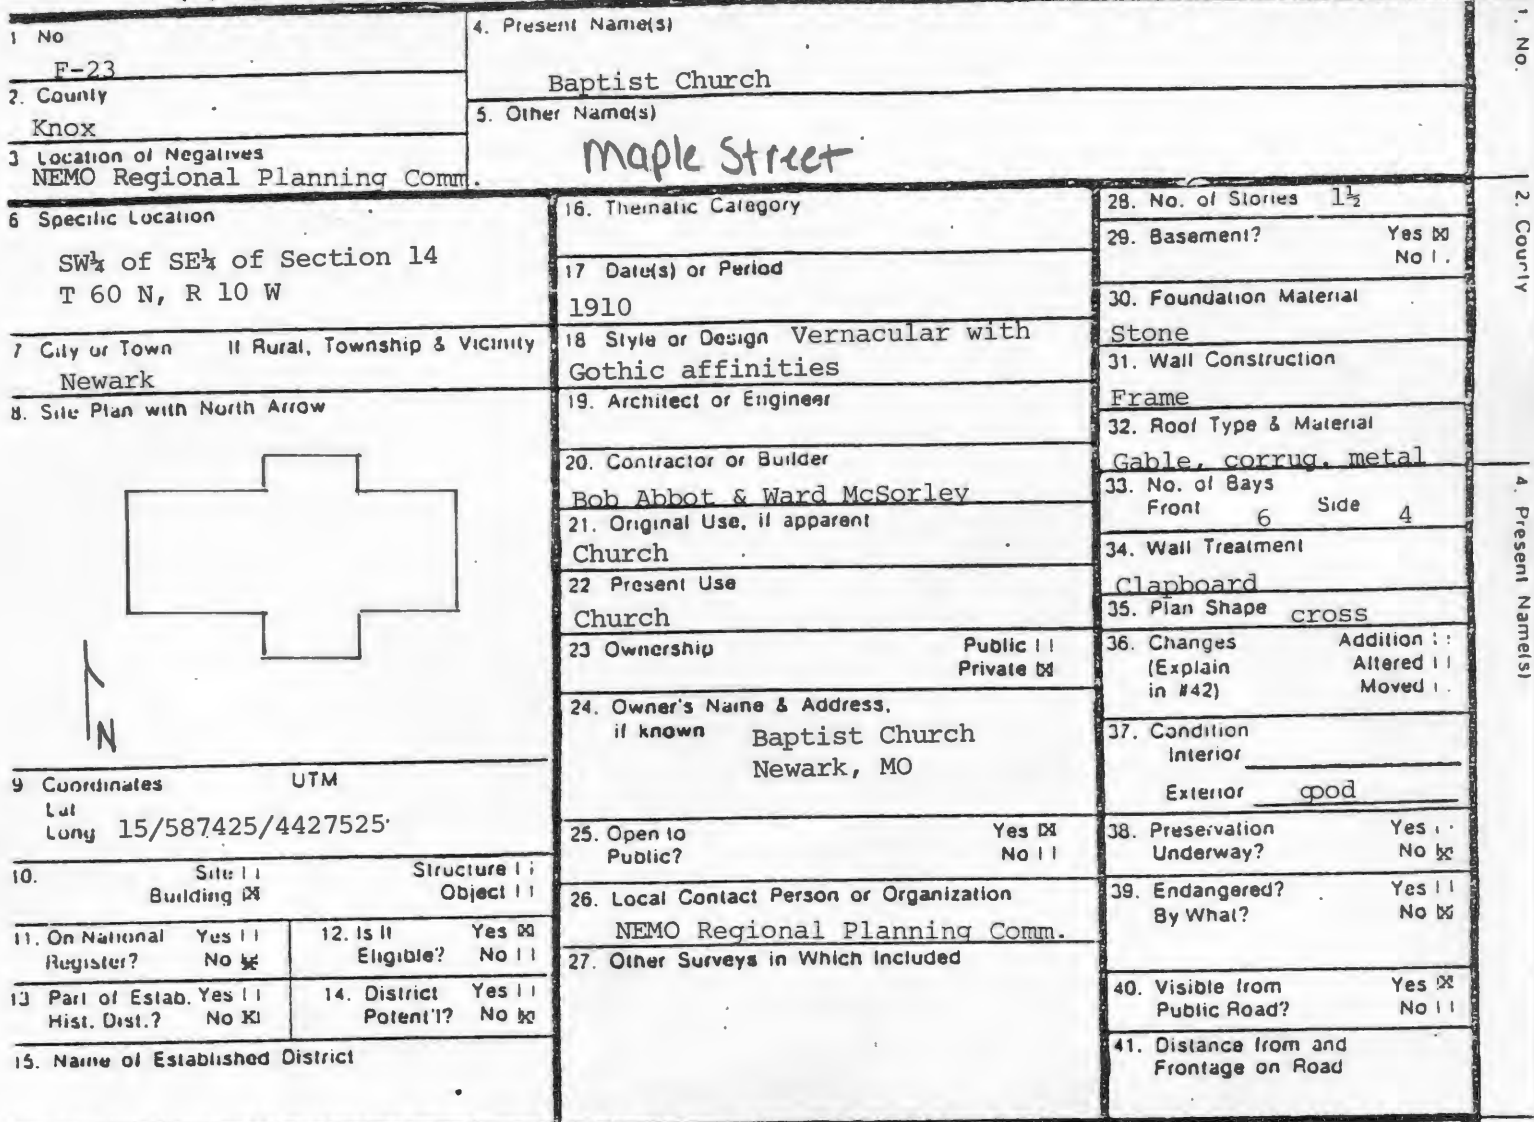 1 No
F-23
2. County
Knox
3 Location of Negatives
NEMO Regional Planning Comm.
4. Present Name(s)
Baptist Church
5. Other Name(s)
Maple Street
6 Specific Location
SW¼ of SE¼ of Section 14
T 60 N, R 10 W
7 City or Town If Rural, Township & Vicinity
Newark
8. Site Plan with North Arrow
N
9 Coordinates UTM
Lat
Long 15/587425/4427525
10. Site
Structure
Building ☒
Object
11. On National Register? Yes
No ☒
12. Is It Eligible? Yes ☒
No
13 Part of Estab. Hist. Dist.? Yes
No ☒
14. District Potent'l? Yes
No ☒
15. Name of Established District
16. Thematic Category
17 Date(s) or Period
1910
18 Style or Design Vernacular with
Gothic affinities
19. Architect or Engineer
20. Contractor or Builder
Bob Abbot & Ward McSorley
21. Original Use, if apparent
Church
22 Present Use
Church
23 Ownership Public
Private ☒
24. Owner's Name & Address,
if known Baptist Church
Newark, MO
25. Open to Yes ☒
Public? No
26. Local Contact Person or Organization
NEMO Regional Planning Comm.
27. Other Surveys in Which Included
28. No. of Stories 1½
29. Basement? Yes ☒
No
30. Foundation Material
Stone
31. Wall Construction
Frame
32. Roof Type & Material
Gable, corrug. metal
33. No. of Bays
Front 6 Side 4
34. Wall Treatment
Clapboard
35. Plan Shape cross
36. Changes Addition
(Explain Altered
in #42) Moved
37. Condition
Interior
Exterior good
38. Preservation Yes
Underway? No ☒
39. Endangered? Yes
By What? No ☒
40. Visible from Yes ☒
Public Road? No
41. Distance from and
Frontage on Road
1. No.
2. County
4. Present Name(s)